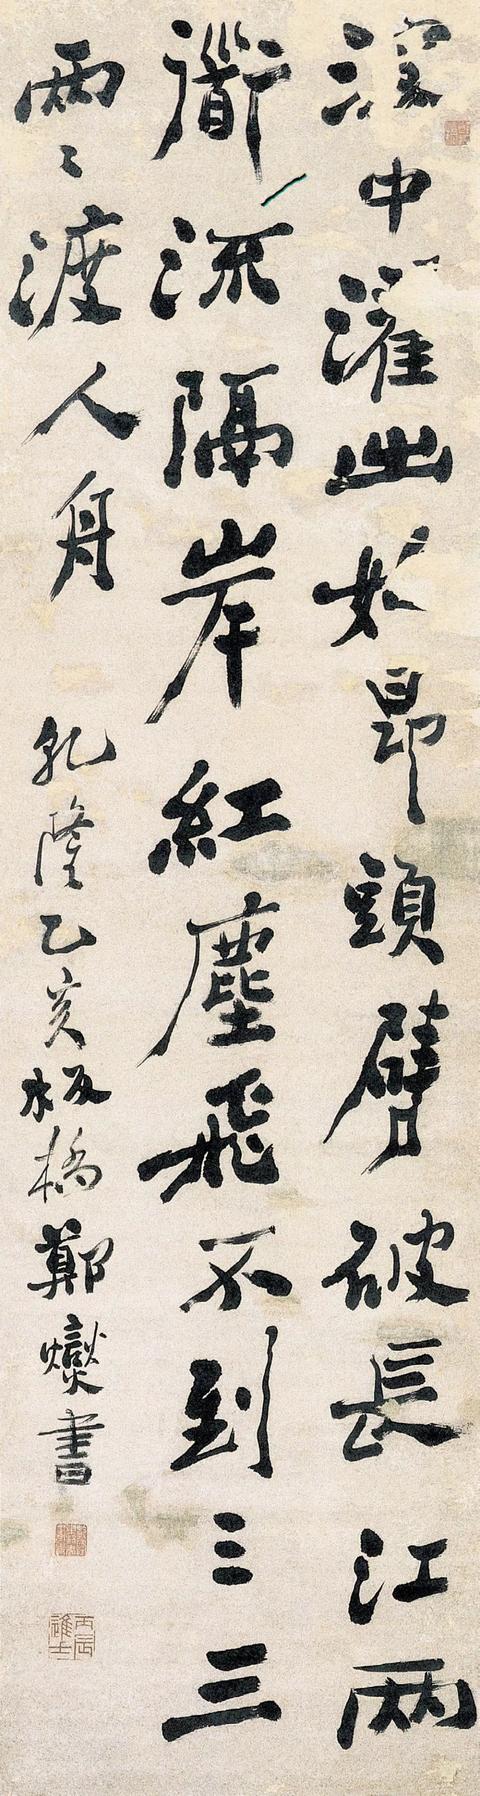 中濯此如昂頭劈破長江兩
衟流隔岸紅塵飛不到三三
兩〻渡人舟
乾隆乙亥板橋鄭燮書
丙辰進士